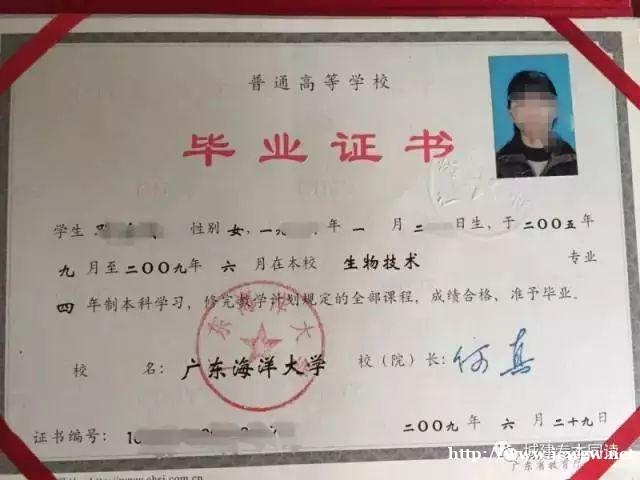 普通高等学校
毕业证书
学生 性别 女，一九 年 一 月 二 日生，于 二〇〇五 年
九 月至 二〇〇九 年 六 月在本校 生物技术 专业
四 年制本科学习，修完教学计划规定的全部课程，成绩合格，准予毕业。
校 名：广东海洋大学 校（院）长：何真
二〇〇九 年 六 月 二十九 日
证书编号：1